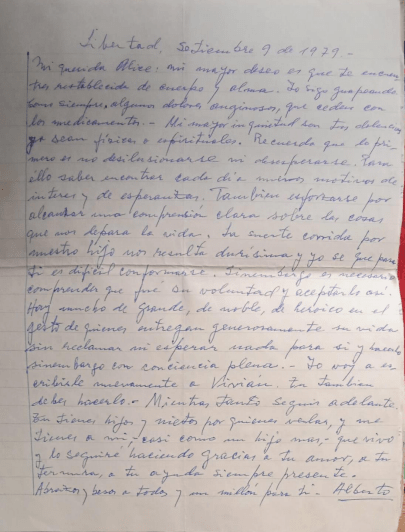 Libertad, setiembre 9 de 1979.-
Mi querida Alice: mi mayor deseo es que te encuen
tres restablecida de cuerpo y alma. Yo sigo guapeando
como siempre, algunos dolores anginosos, que ceden con
los medicamentos.- Mi mayor inquietud son tus dolencias
ya sean físicas o espirituales. Recuerda que lo pri-
mero es no desilusionarse ni desesperarse. Para
ello saber encontrar cada día nuevos motivos de
interes y de esperanzas. Tambien esforzarse por
alcanzar una comprensión clara sobre las cosas
que nos depara la vida. La suerte corrida por
nuestro hijo nos resulta durísima y yo se que para
ti es dificil conformarse. Sinembargo es necesario
comprender que fué su voluntad y aceptarlo así.
Hay mucho de grande, de noble, de heroico en el
gesto de quienes entregan generosamente su vida
sin reclamar ni esperar nada para si y hacerlo
sinembargo con conciencia plena.- Yo voy a es
cribirle nuevamente a Vivián. Tu tambien
debes hacerlo.- Mientras tanto seguir adelante.
Tu tienes hijos y nietos por quienes velar, y me
tienes a mi,- casi como un hijo mas,- que vivo
y lo seguiré haciendo gracias a tu amor, a tu
ternura, a tu ayuda siempre presente.-
Abrazos y besos a todos y un millón para ti.- Alberto